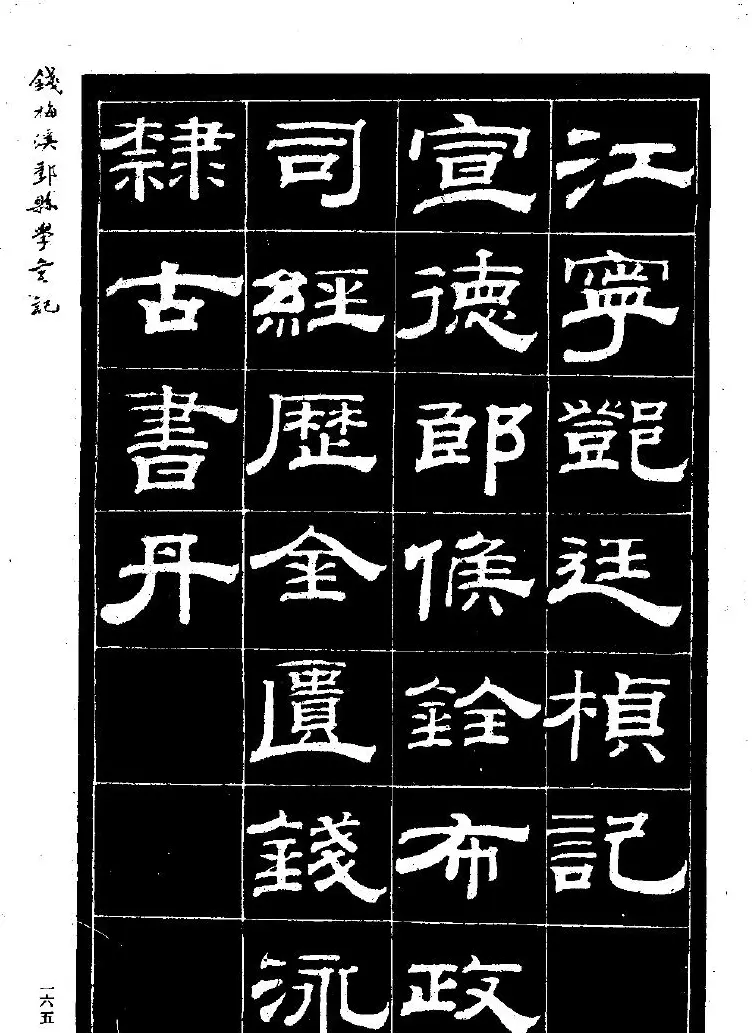 江寧鄧廷楨記
宣德郎候銓布政
司經歷金匱錢泳
隸古書丹
錢梅溪鄞縣學宮記
一六五